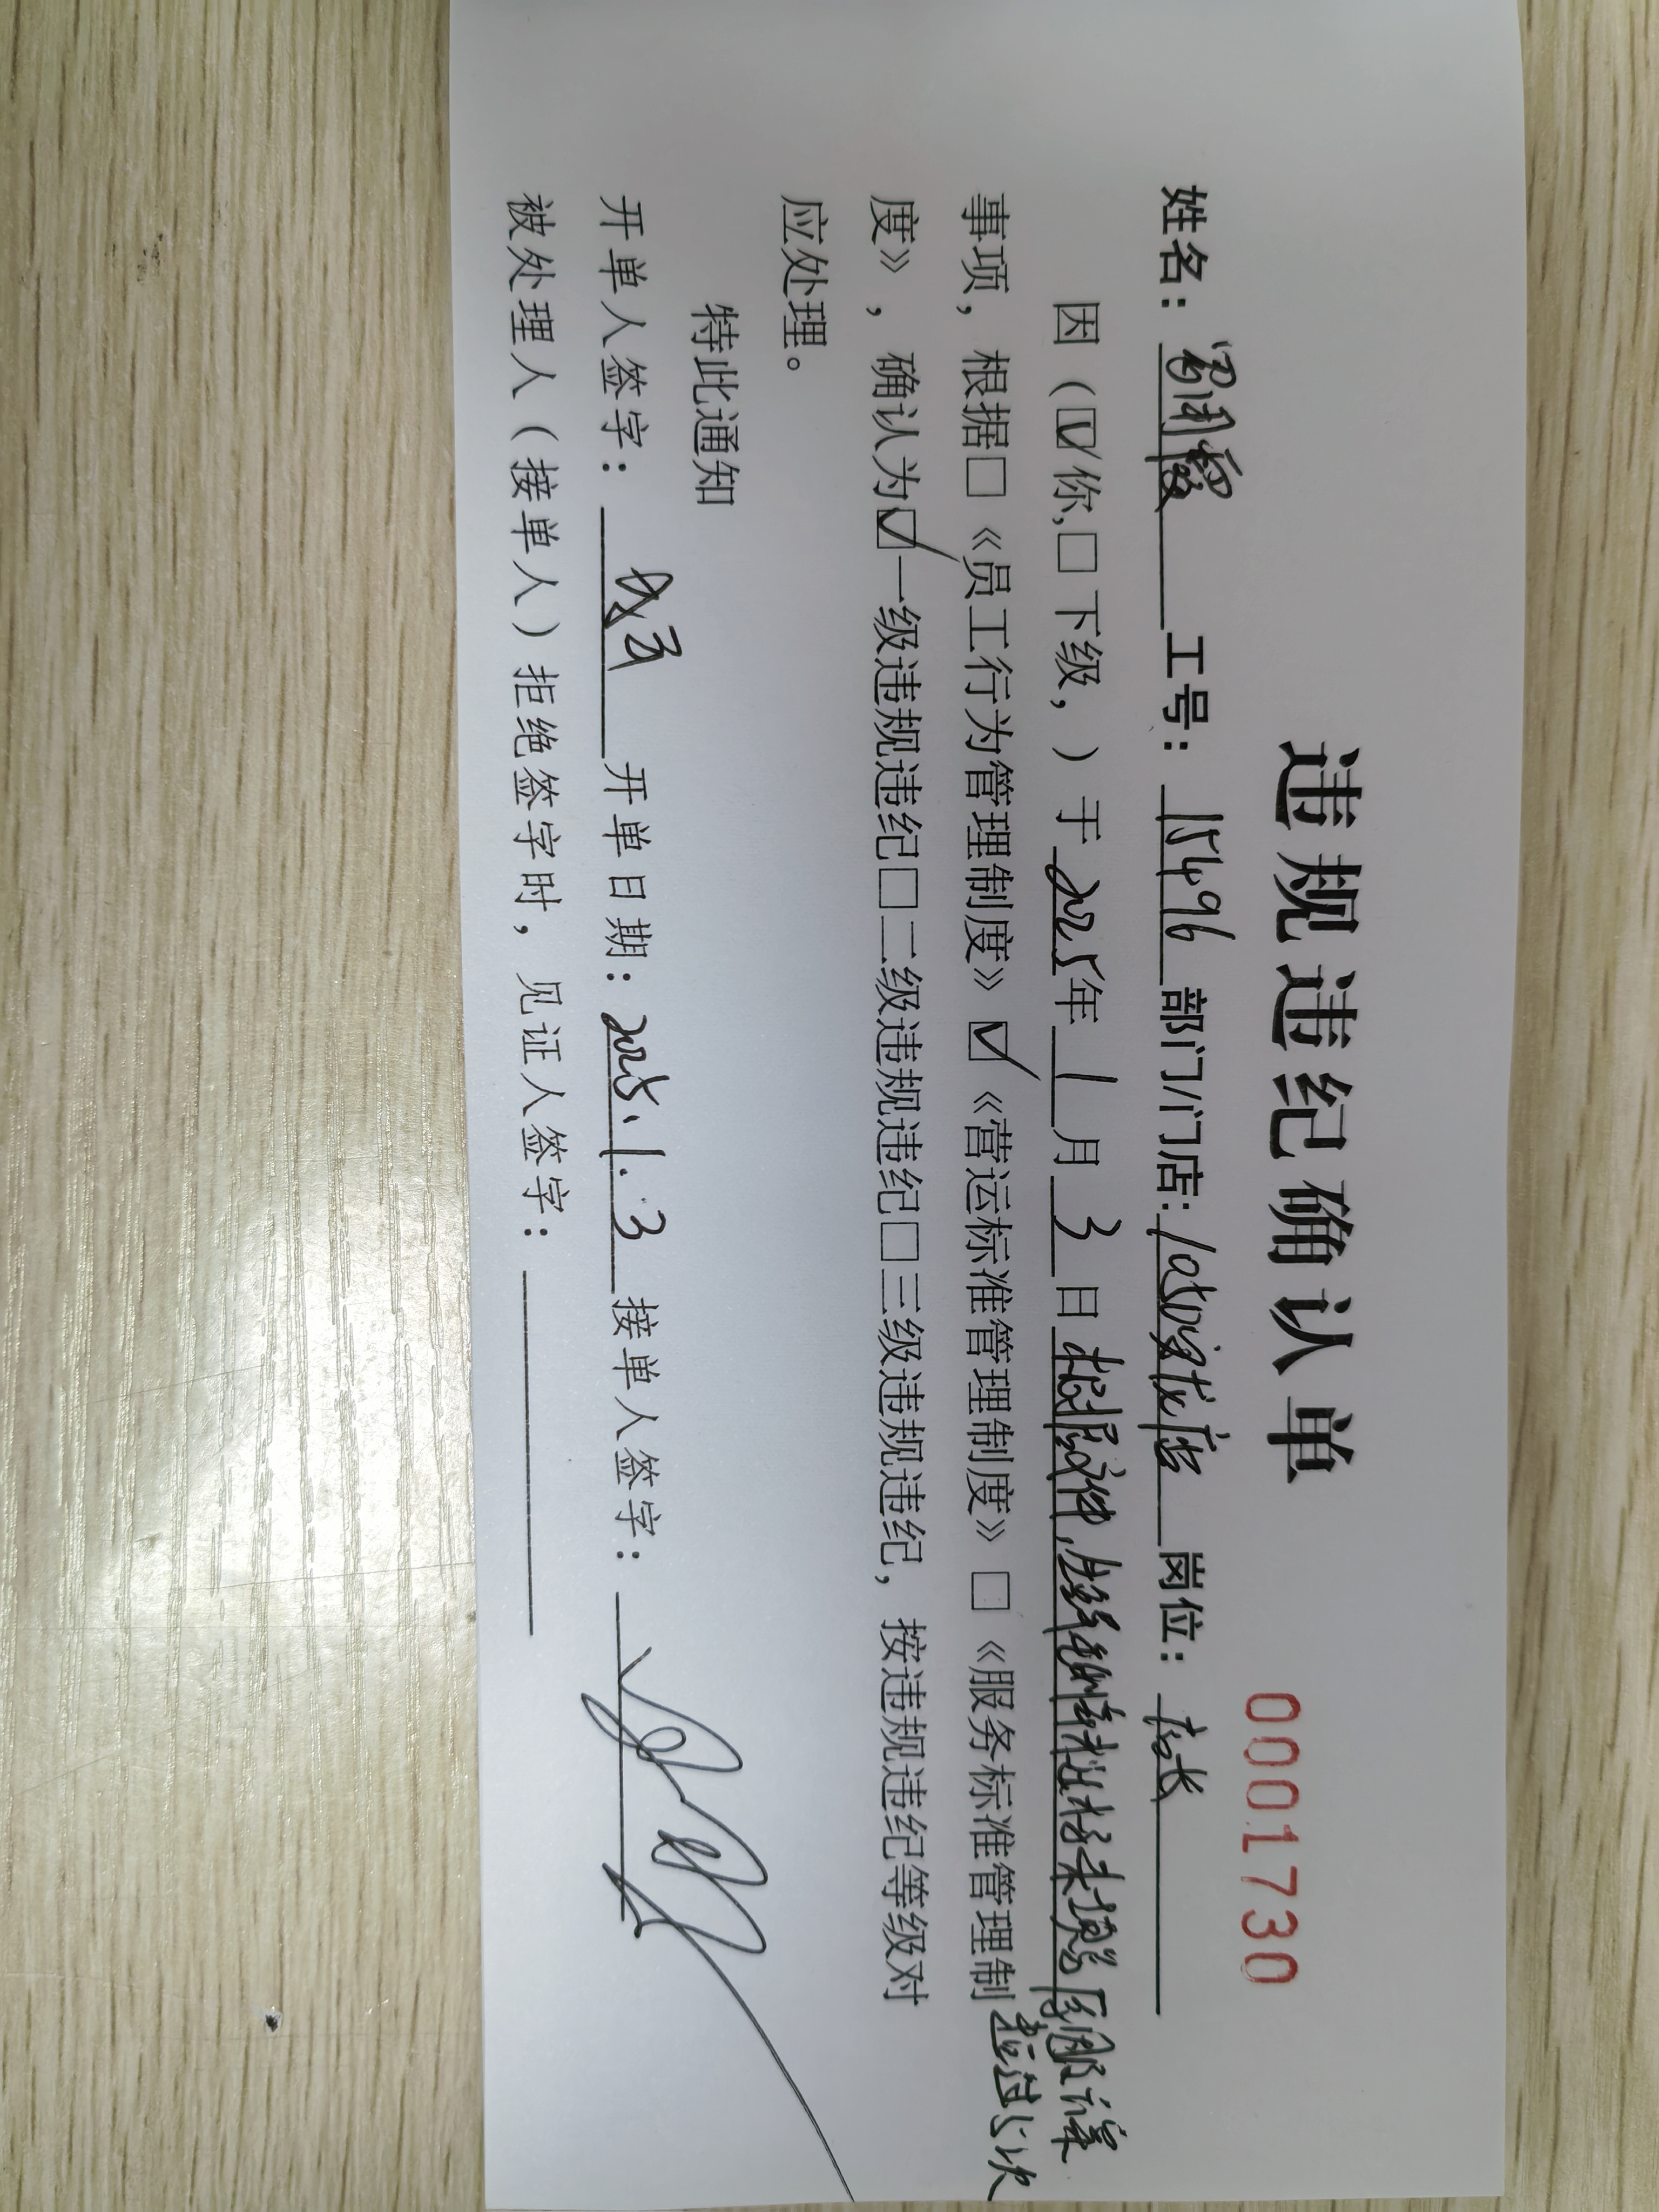 违规违纪确认单
0001730
姓名： 工号：15496 部门/门店： 岗位：店长
因（☑你，□下级，）于2025年1月3日根据文件， 未提醒 超过5次
事项，根据□《员工行为管理制度》☑《营运标准管理制度》□《服务标准管理制
度》，确认为☑一级违规违纪□二级违规违纪□三级违规违纪，按违规违纪等级对
应处理。
特此通知
开单人签字： 开单日期：2025.1.3 接单人签字：
被处理人（接单人）拒绝签字时，见证人签字：